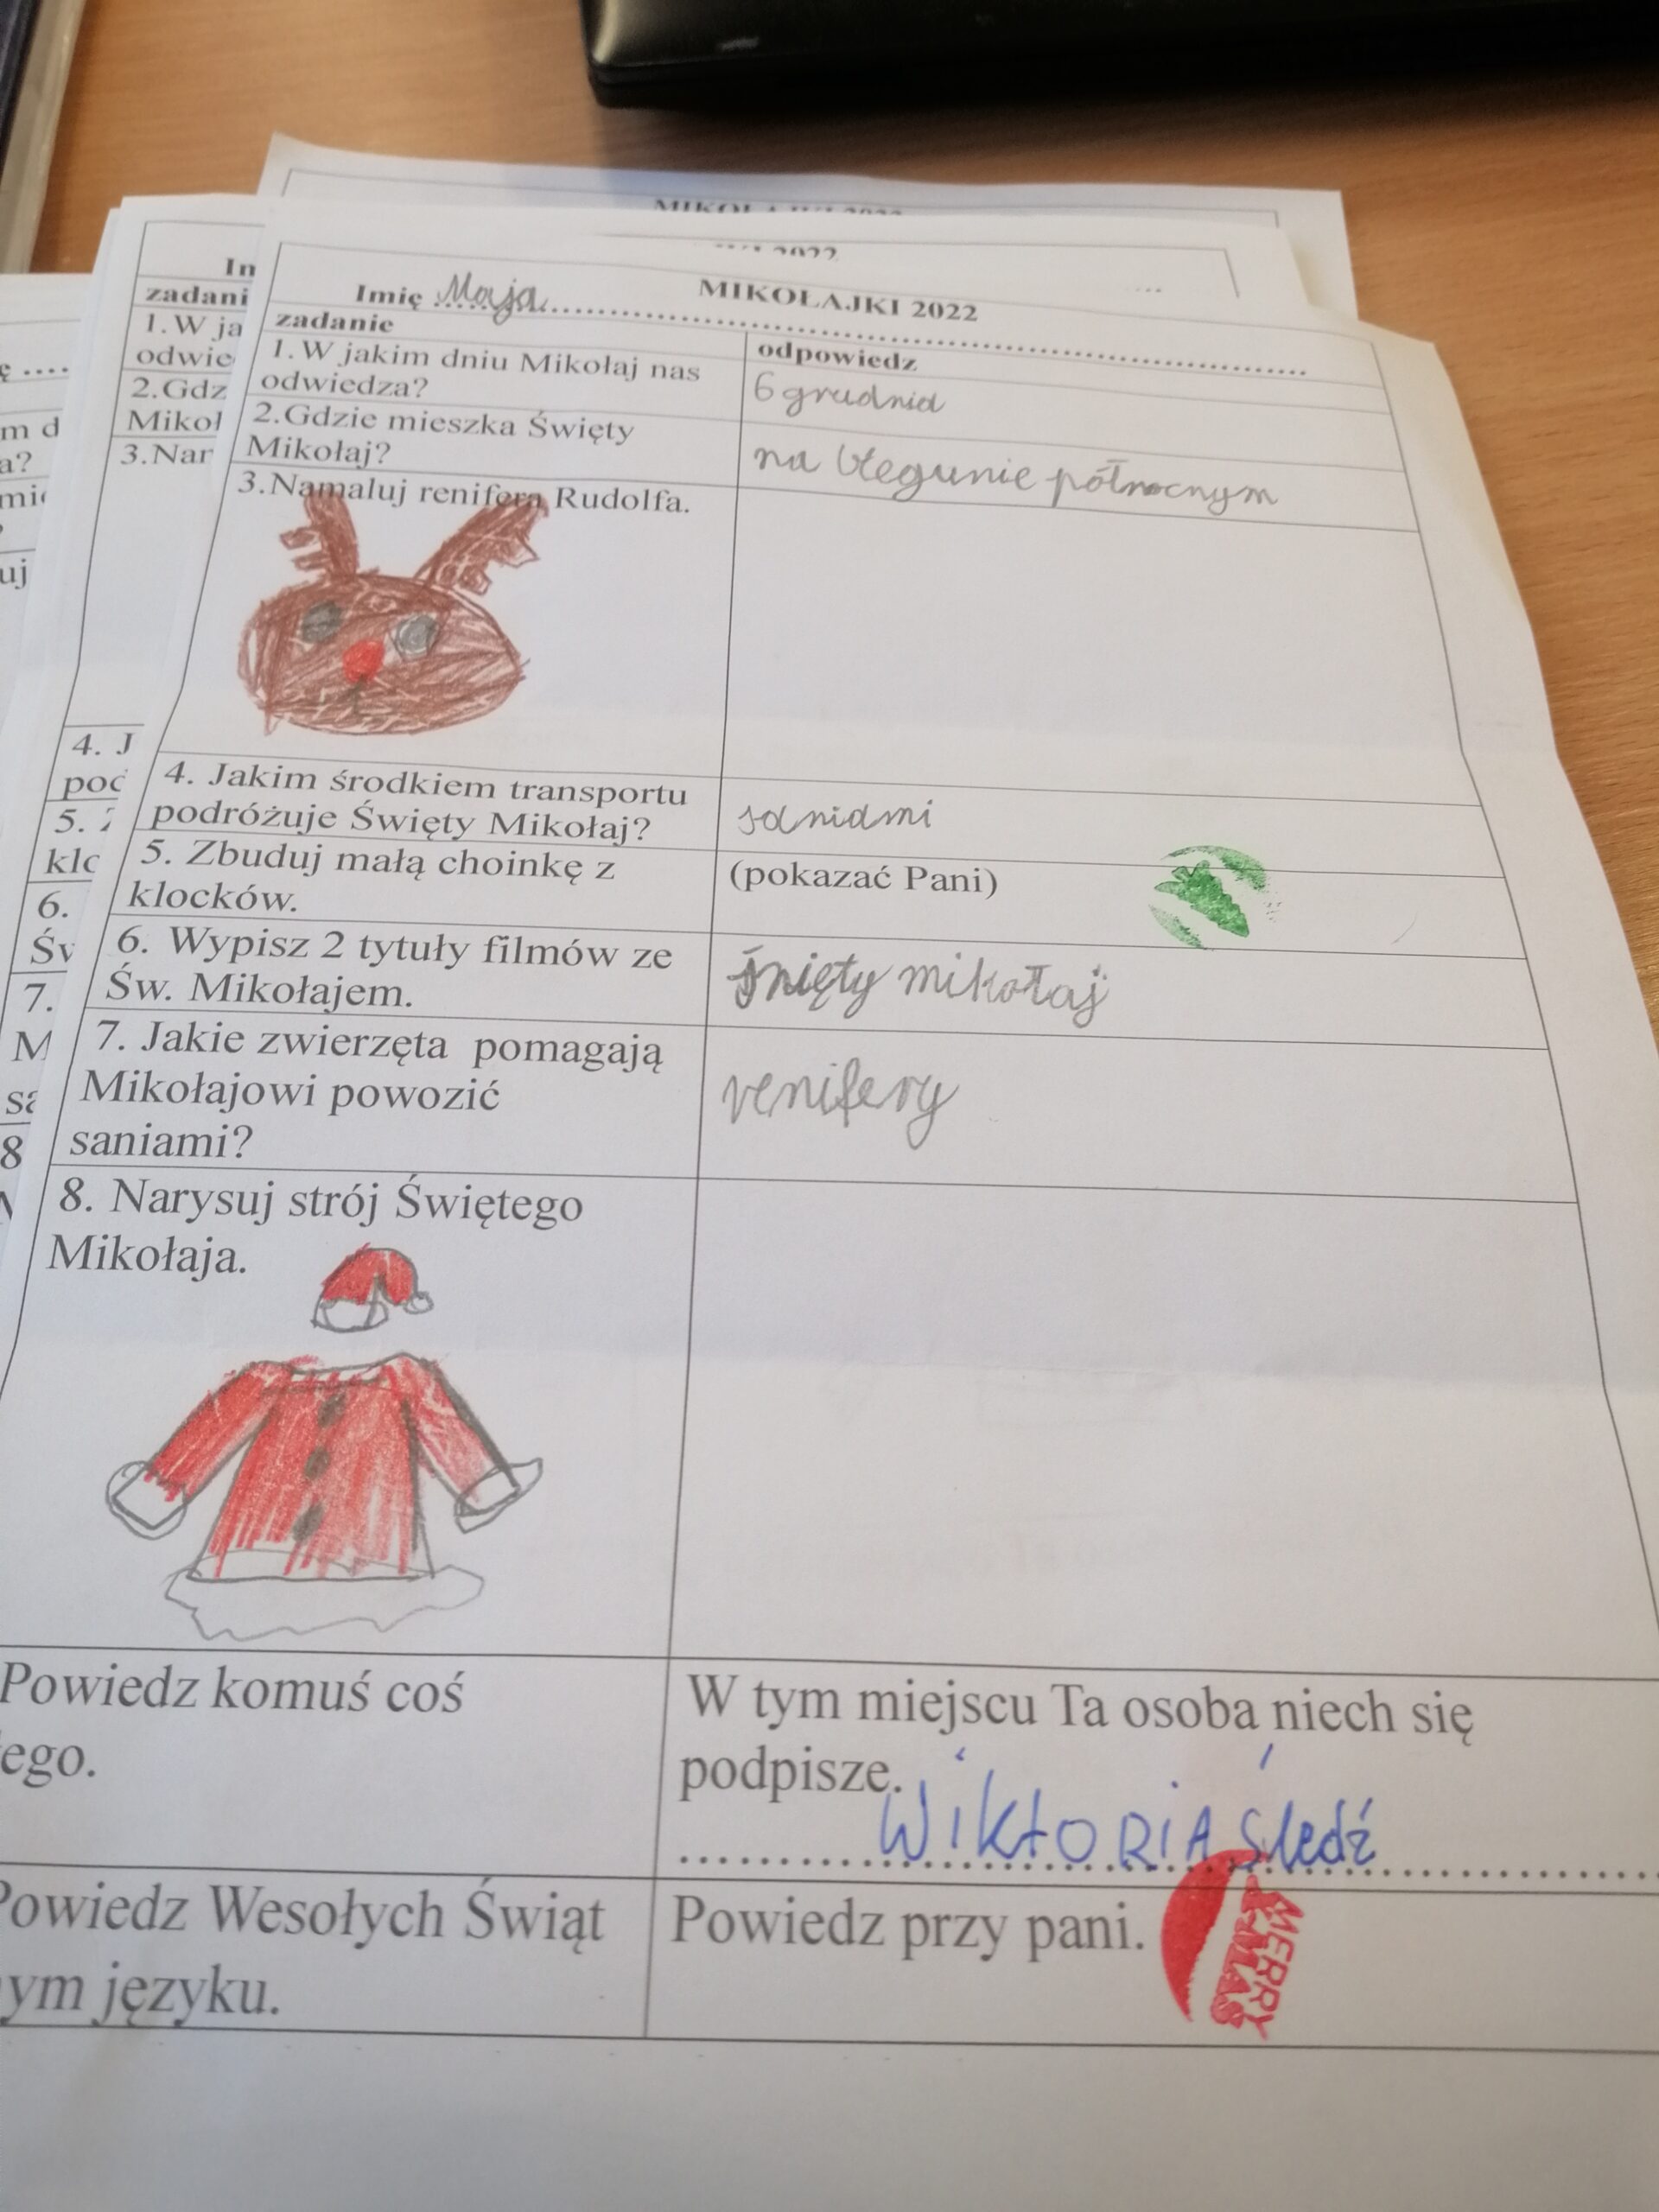 MIKOŁAJKI 2022
2022
MIKOŁAJKI 2022
Imię Maja
zadanie
odpowiedz
1.W jakim dniu Mikołaj nas
odwiedza?
6 grudnia
2.Gdzie mieszka Święty
Mikołaj?
na biegunie północnym
3.Namaluj renifera Rudolfa.
4. Jakim środkiem transportu
podróżuje Święty Mikołaj?
saniami
5. Zbuduj małą choinkę z
klocków.
(pokazać Pani)
6. Wypisz 2 tytuły filmów ze
Św. Mikołajem.
święty mikołaj
7. Jakie zwierzęta pomagają
Mikołajowi powozić
saniami?
renifery
8. Narysuj strój Świętego
Mikołaja.
Powiedz komuś coś
ego.
W tym miejscu Ta osoba niech się
podpisze.
WiktORIA Śledź
Powiedz Wesołych Świąt
ym języku.
Powiedz przy pani.
MERRY
X-MAS
In
zadani
1.W ja
odwie
2.Gdz
Mikoł
3.Nar
4. J
poc
5.
klo
6.
Św
7.
M
sa
8
m d
a?
mie
?
uj